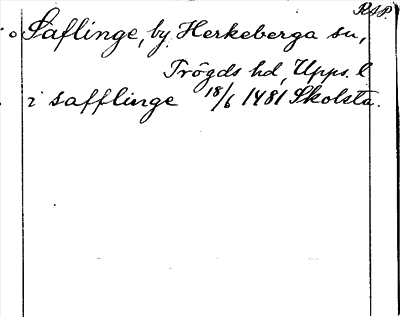 RAP.
Säflinge, by, Herkeberga sn,
Trögds hd, Upps. l
i safflinge 18/6 1481 Skolsta.